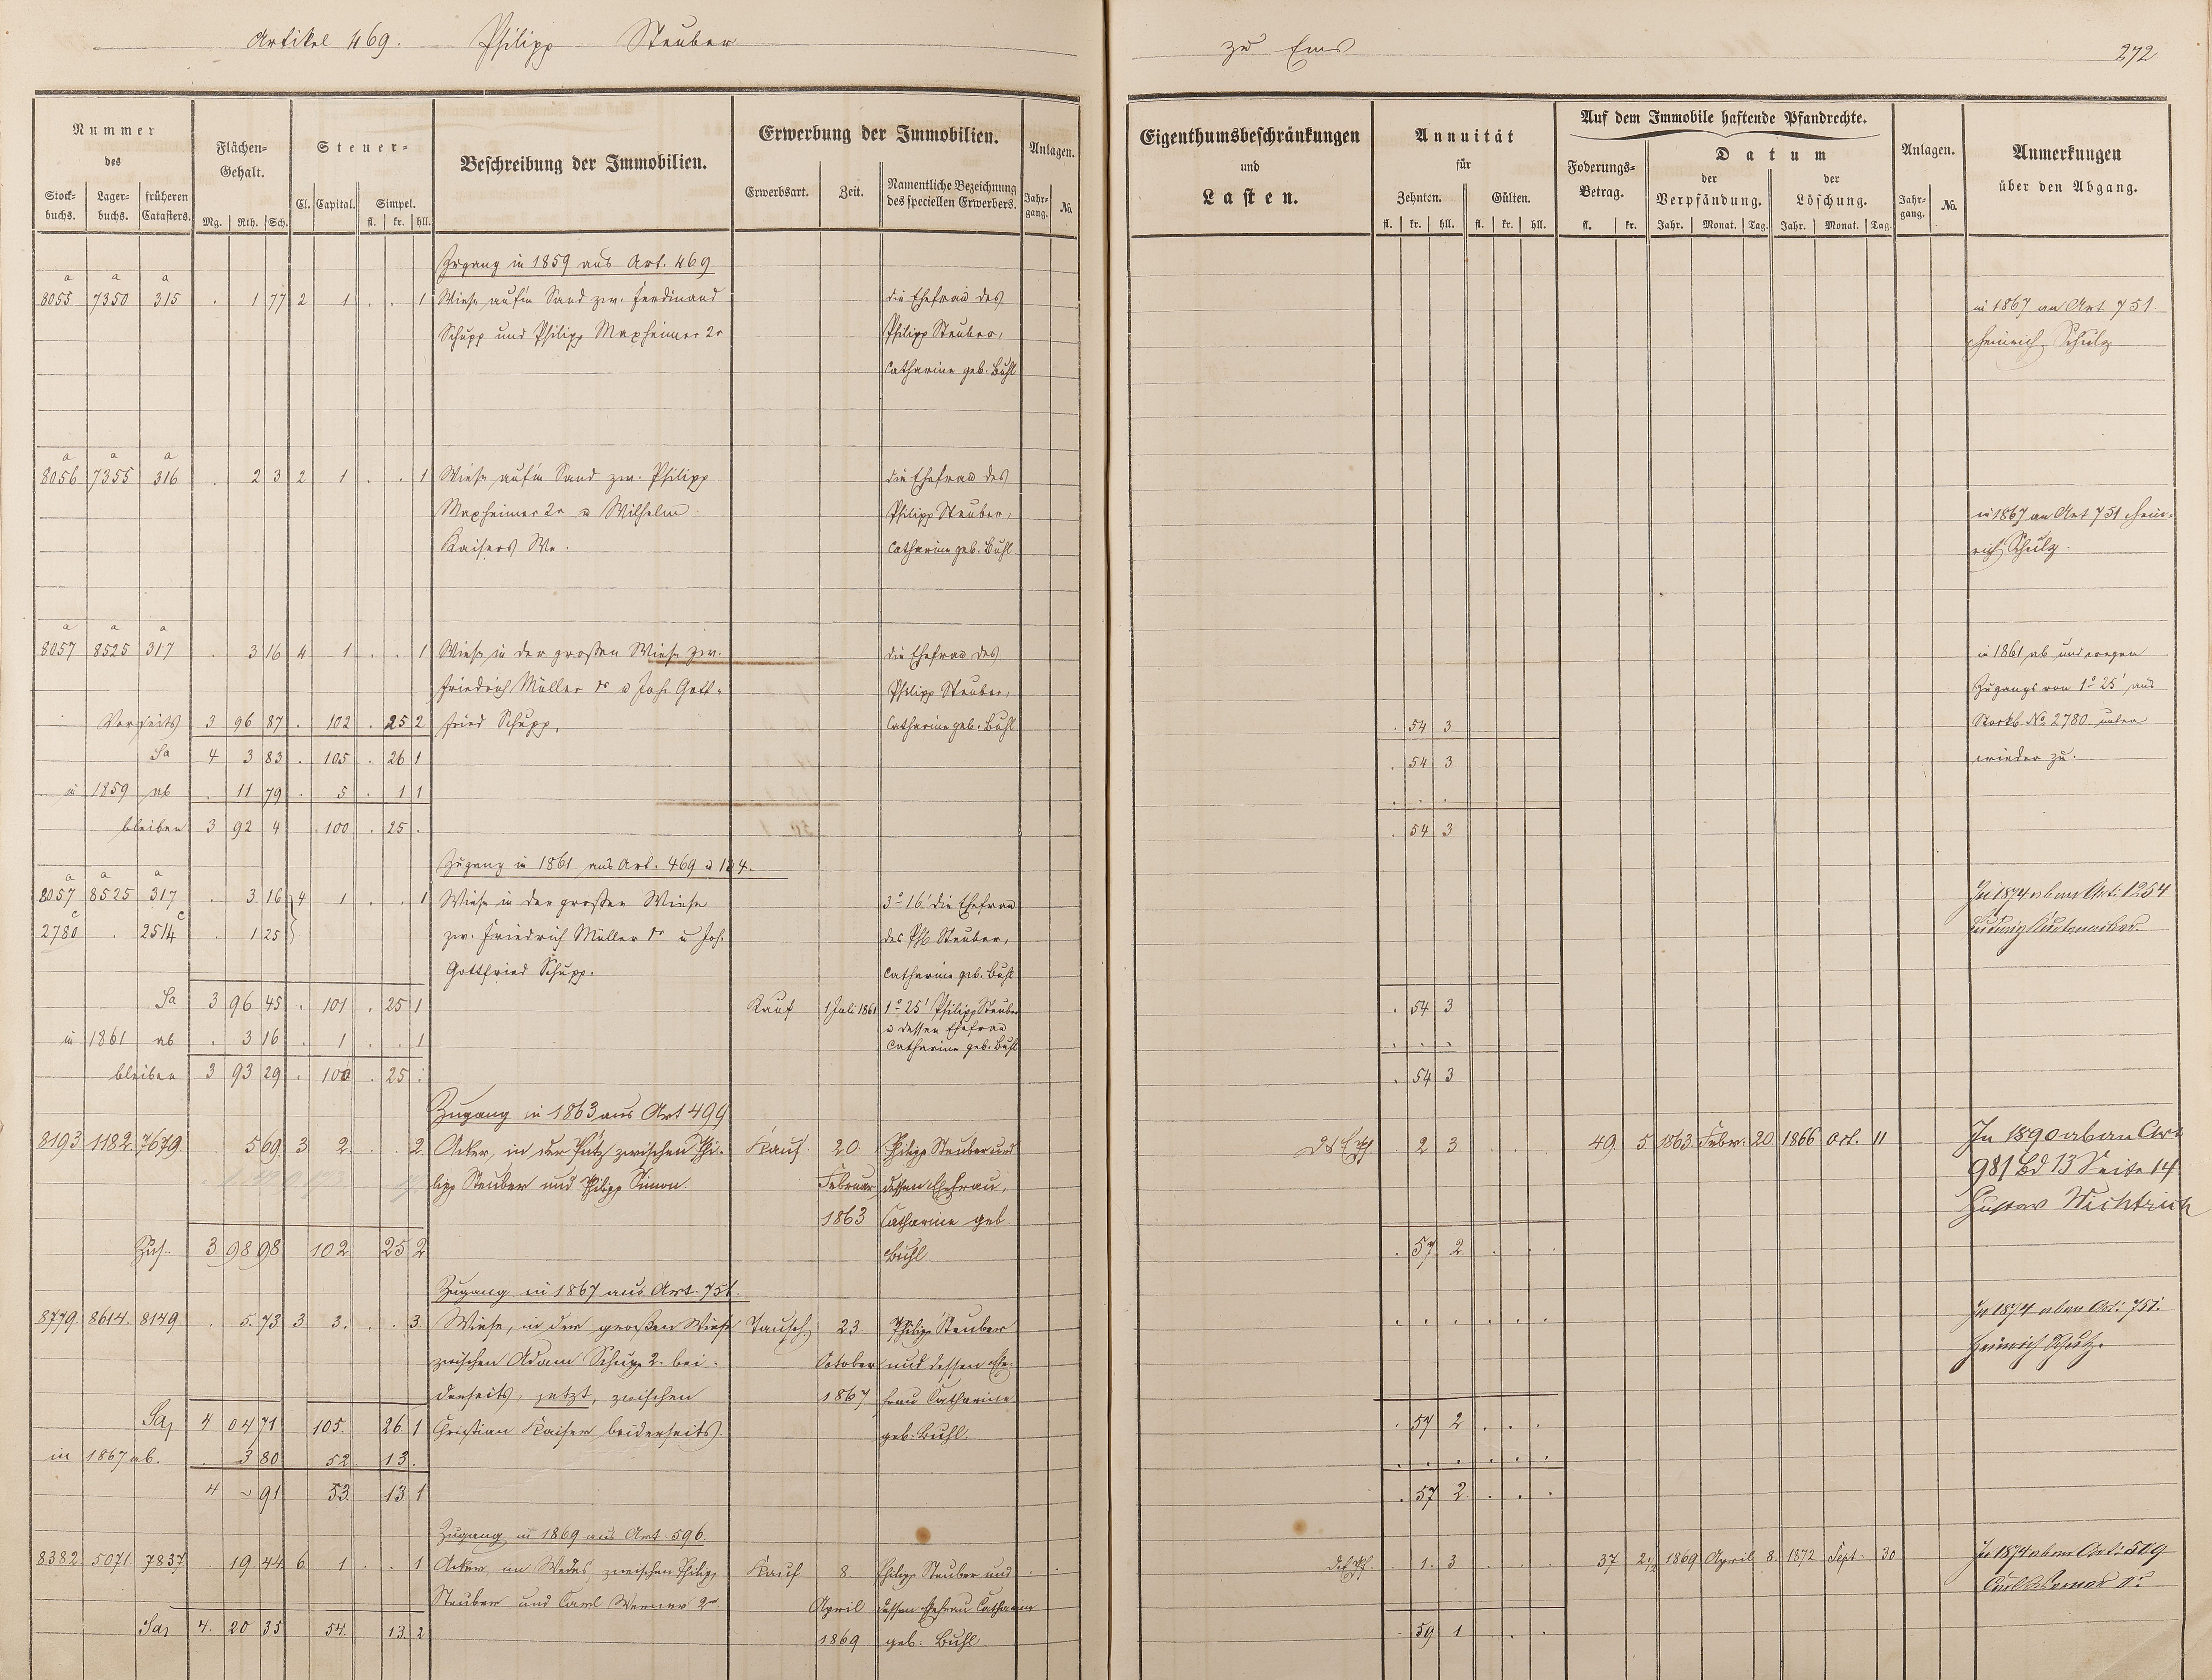 Artikel 469. Philipp Steuber zu Ems 272.
Nummer des
Stockbuchs. Lagerbuchs. früheren Catasters.
Flächen-Gehalt.
Mg. Rth. Sch.
Steuer-
Cl. Capital. Simpel.
fl. kr. hll.
Beschreibung der Immobilien.
Erwerbung der Immobilien.
Erwerbsart. Zeit. Namentliche Bezeichnung des speciellen Erwerbers.
Anlagen.
Jahrgang. No.
Eigenthumsbeschränkungen
und
Lasten.
Annuität
für
Zehnten. Gülten.
fl. kr. hll. fl. kr. hll.
Auf dem Immobile haftende Pfandrechte.
Foderungs-Betrag.
fl. kr.
Datum
der Verpfändung. der Löschung.
Jahr. Monat. Tag. Jahr. Monat. Tag.
Anlagen.
Jahrgang. No.
Anmerkungen
über den Abgang.
Zugang in 1859 aus Art. 469
a a a
8055 7350 315 . 1 77 2 1 . . 1 Wiese auf'm Sand zw. Ferdinand die Ehefrau des in 1867 an Art 751.
Schupp und Philipp Maxheimer 2r Philipp Steuber, Heinrich Schulz
Catharine geb. Buhl
a a a
8056 7355 316 . 2 3 2 1 . . 1 Wiese auf'm Sand zw. Philipp die Ehefrau des
Maxheimer 2r u Wilhelm Philipp Steuber, in 1867 an Art. 751 Hein-
Kaisers We. Catharine geb. Buhl rich Schulz.
a a a
8057 8525 317 . 3 16 4 1 . . 1 Wiese in der großen Wiese zw. die Ehefrau des in 1861 ab und wegen
Friedrich Müller 1r u Joh. Gott- Philipp Steuber, Zugangs von 1° 25' aus
Vorseits 3 96 87 . 102 . 25 2 fried Schupp. Catharine geb. Buhl . 54 3 Stockb. No 2780 unten
Sa 4 3 83 . 105 . 26 1 . 54 3 wieder zu.
in 1859 ab . 11 79 . 5 . 1 1 . . .
bleiben 3 92 4 . 100 . 25 . . 54 3
Zugang in 1861 aus Art. 469 u 184.
a a a
8057 8525 317 . 3 16 4 1 . . 1 Wiese in der großen Wiese 3° 16' die Ehefrau In 1874 ab an Art: 1254
c c
2780 . 2514 . 1 25 zw. Friedrich Müller 1r u Joh. des Ph. Steuber, Ludwig
Gottfried Schupp. Catharine geb. Buhl
Sa 3 96 45 . 101 . 25 1 Kauf 1 Juli 1861 1° 25' Philipp Steuber . 54 3
u dessen Ehefrau
in 1861 ab . 3 16 . 1 . . 1 Catharine geb. Buhl . . .
bleiben 3 93 29 . 100 . 25 . . 54 3
Zugang in 1863 aus Art 499
8193 1182. 7679. 5 69 3 2. . . 2. Acker, in der Pütz zwischen Phi- Kauf 20. Philipp Steuber und . 2 3 49. 5 1863. Febr. 20. 1866 Oct. 11 In 1890 ab an Art
lipp Steuber und Philipp Simon. Februar dessen Ehefrau, 981 Bd 13 Seite 14
1863 Catharine geb. Gustav
Zus. 3 98 98 102 25 2 Buhl . 57 2 . . .
Zugang in 1867 aus Art. 751.
8779. 8614. 8149 . 5. 73 3 3. . . 3 Wiese, in der großen Wiese Tausch 23. Philipp Steuber . . . . . . In 1874 ab an Art: 751.
zwischen Adam Schupp 2. bei- October und dessen Ehe- Heinrich Schulz.
derseits, jetzt, zwischen 1867 frau Catharine
Sa, 4 04 71 105. 26. 1 Christian Kaiser beiderseits. geb. Buhl. . 57 2 . . .
in 1867 ab. . 3 80 52 13. . . . . . .
4 ~ 91 53 13 1 . 57 2. . . .
Zugang in 1869 aus Art. 596
8382. 5071. 7837. . 19 44 6. 1 . . 1 Acker im Wedes zwischen Philipp Kauf 8. Philipp Steuber und . . . 1. 3 . . . 37 2½ 1869. April 8. 1872 Sept. 30 In 1874 ab an Art: 509
Steuber und Carl Werner 2r April dessen Ehefrau Catharine Carl Werner
Sa, 4. 20 35 54. 13. 2 1869 geb. Buhl . 59 1 . .